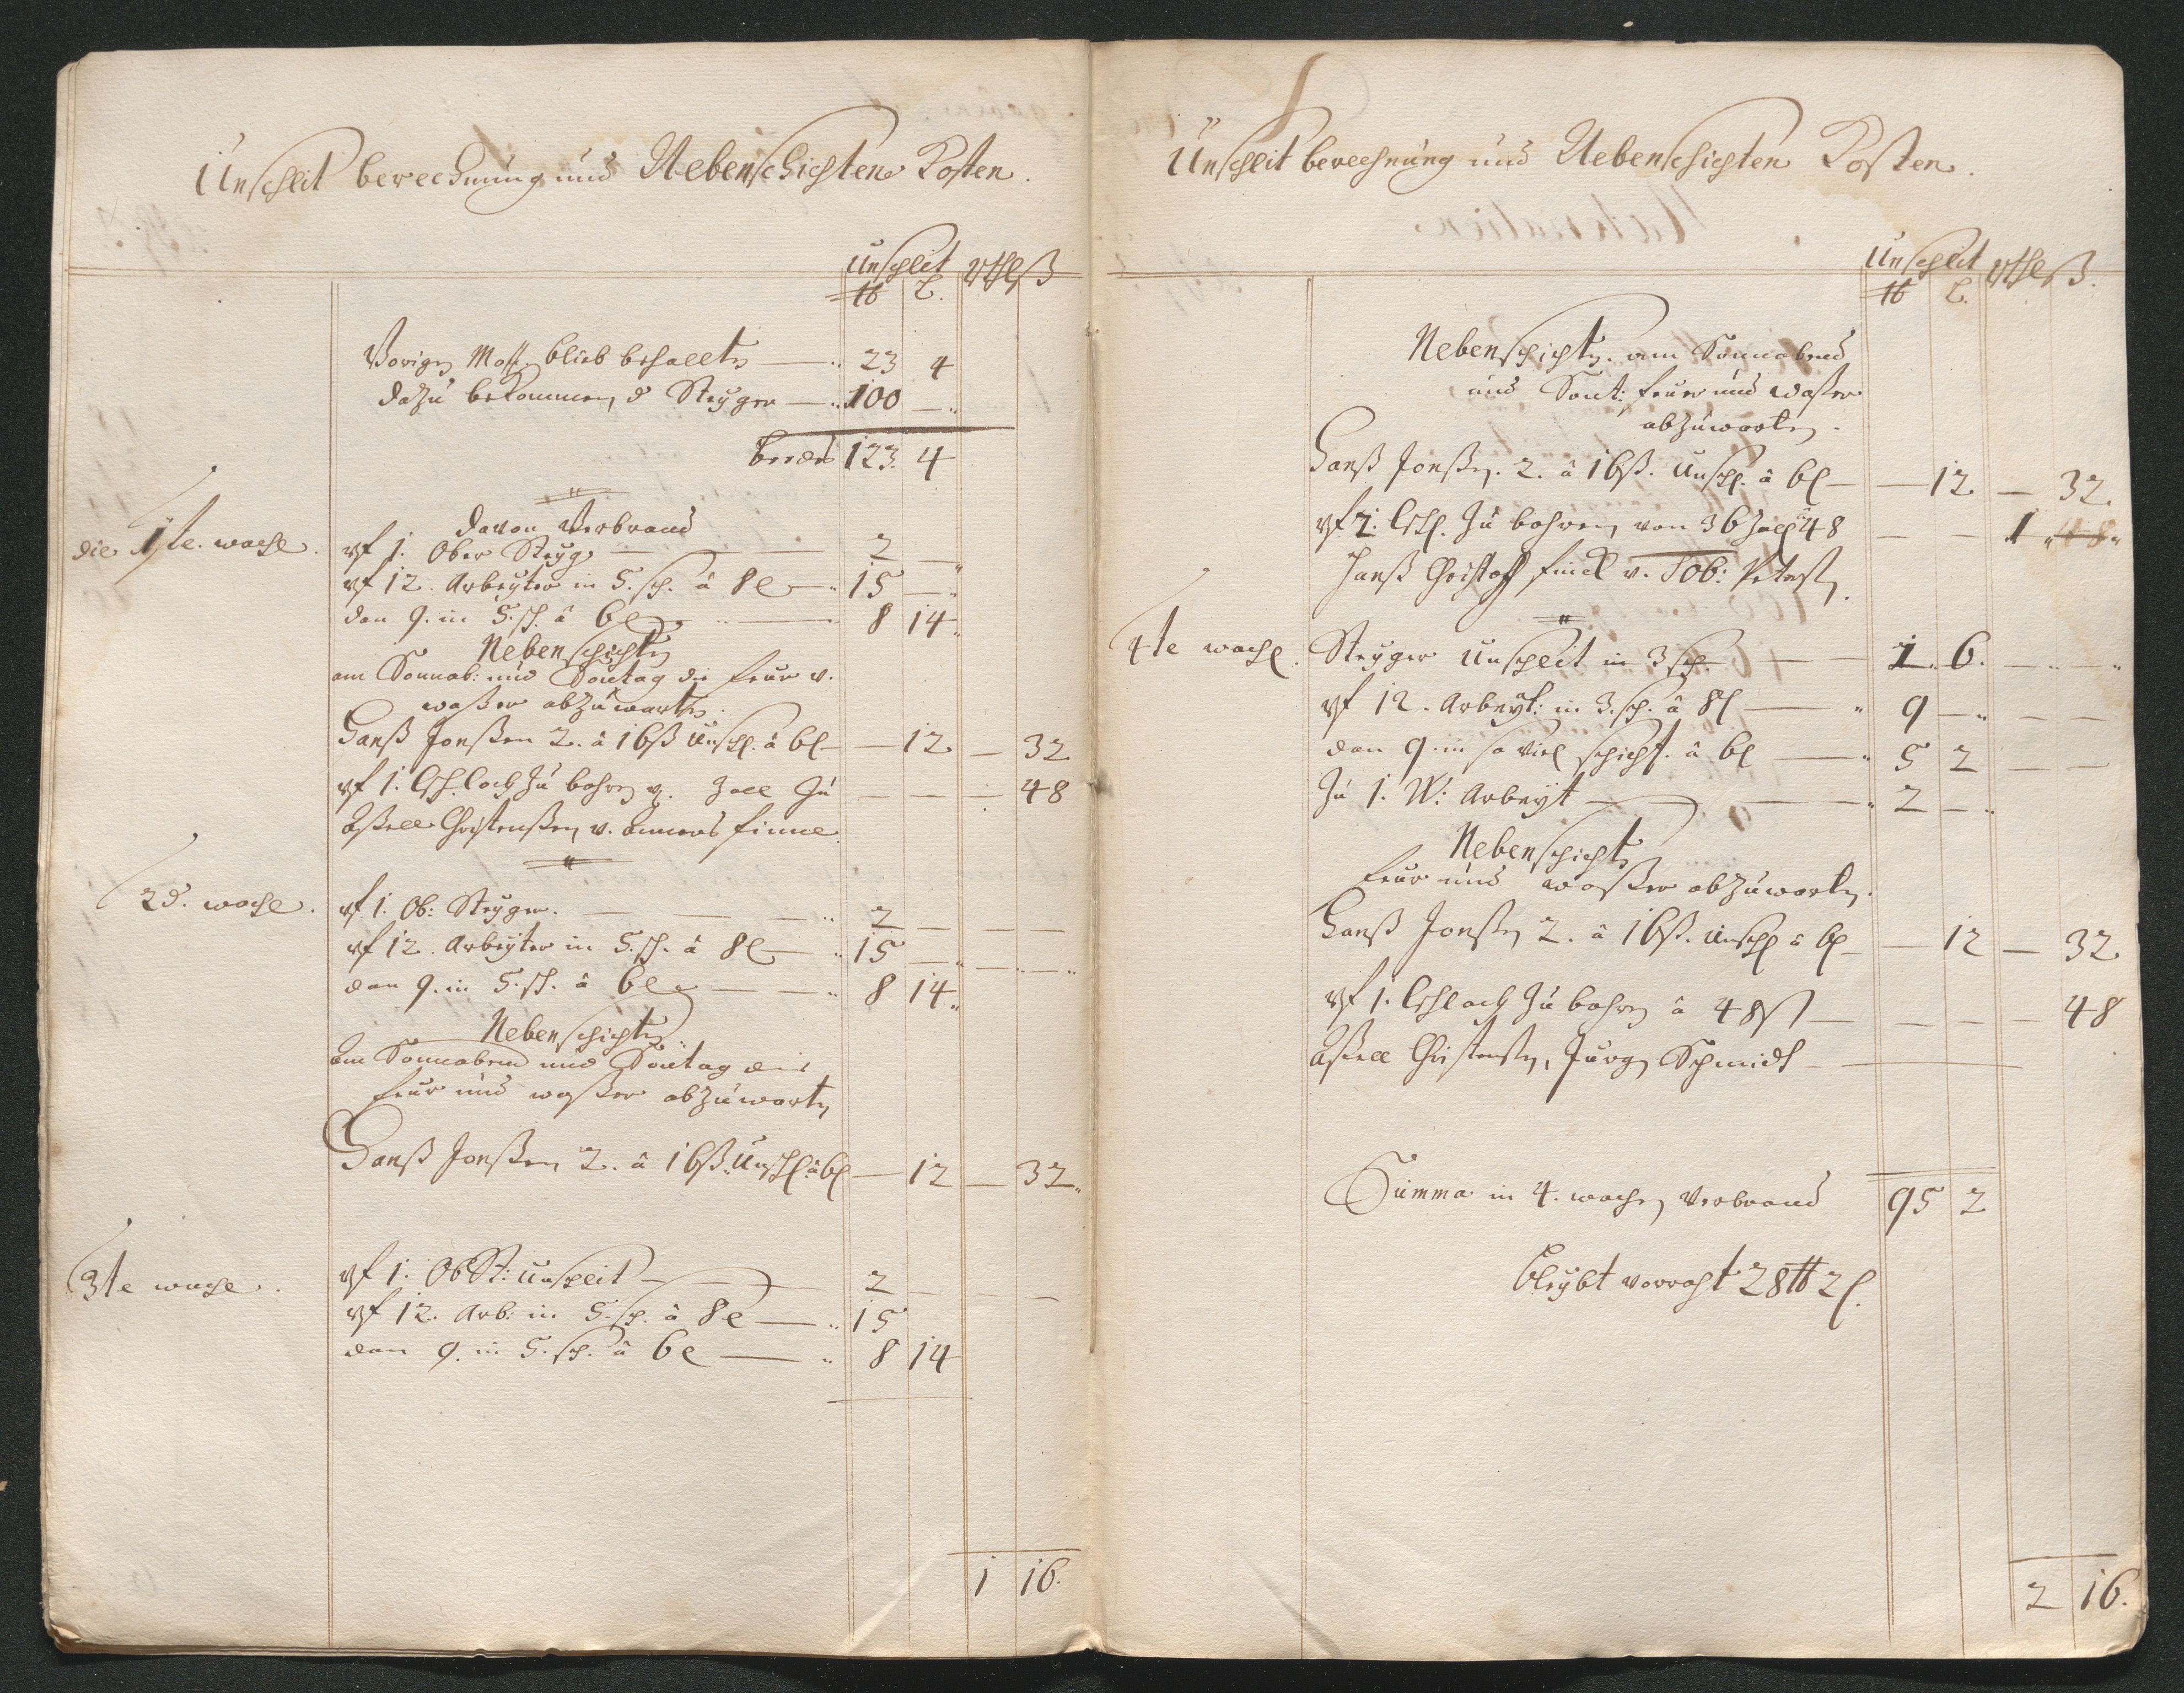 Unschlit berechnung und Nebenschichten Kosten.
Unschlit Rthl ß
℔ L.
Vorigen Mon: blieb behalten — 23 4
dazu bekommen d Steyger — 100 —
beides 123. 4
davon Verbrand
die 1ste. woche. vf 1. Ober Steyg: — 2 —
vf 12. Arbeyter in 5. sch. â 8 l — 15 —
dan 9. in 5. sch. â 6 l — 8 14
Nebenschichten
am Sonnab: und Sontag die feur v.
waßer abzuwarten.
Hanß Jonßen 2. â 16 ß Unschl. â 6 l — 12 — 32
vf 1. loch zu bohren v. Zoll zu — — — 48
Aßell Christenßen v.
2d. woche. vf 1. Ob: Steyger. — 2 — — —
vf 12. Arbeyter in 5. sch. â 8 l — 15 — — —
dan 9. in 5. sch. â 6 l — 8 14
Nebenschichten
am Sonnabend und Sontag die
feur und waßer abzuwarten
Hanß Jonßen 2. â 16 ß. Unschl â 6 l — 12 — 32
3te woche. vf 1. Ob St: Unschlit — 2 — — —
vf 12. Arb: in 5. sch. â 8 l — 15
dan 9. in 5. sch. â 6 l — 8 14
1 16.
Unschlit berechnung und Nebenschichten Kosten.
Unschlit Rthl ß.
℔ L.
Nebenschichten. am Sonnabend
und Sont: feur und waßer
abzuwarten.
Hanß Jonßen. 2. â 16 ß. Unschl. â 6 l — 12 — 32
vf 2. zu bohren, von 36 Zoll 48 — — 1
Hanß Christoff Finck v. Tob: Peterß.
4te woche. Steyger Unschlit in 3 sch. — 1. 6. — —
vf 12. Arbeyt: in 3. sch. â 8 l — 9 — — —
dan 9. in so viel schicht. â 6 l — 5 2 — —
zu 1. W: Arbeyt — 2 —
Nebenschichten
feur und waßer abzuwarten.
Hanß Jonßen 2. â 16 ß. Unschl â 6 l — 12 — 32
vf 1. loch zu bohren â 48 ß — — — — 48
Aßell Christenßen, Jürgen Schmidt —
Summa in 4. wochen Verbrand 95 2
bleybt vorraht 28 ℔ 2 l.
2 16.